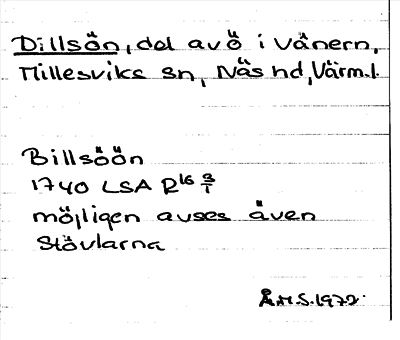 Dillsön, del av ö i Vänern,
Millesviks sn, Näs hd, Värm.l.
Billsöön
1740 LSA R16 3/1
möjligen avses även
Stövlarna
Å.M.S. 1972